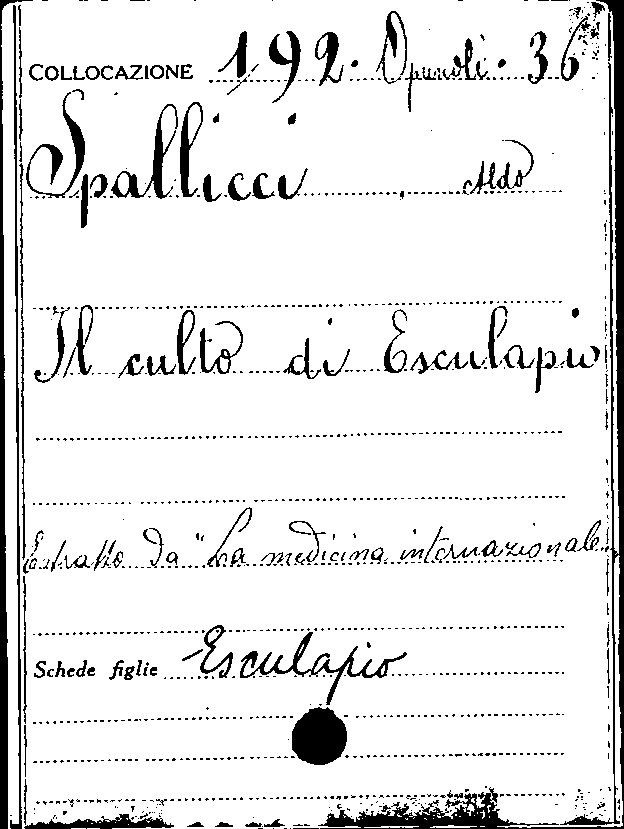 COLLOCAZIONE 192. Opuscoli. 36
Spallicci, Aldo
Il culto di Esculapio
Estratto da "La medicina internazionale"
Schede figlie Esculapio